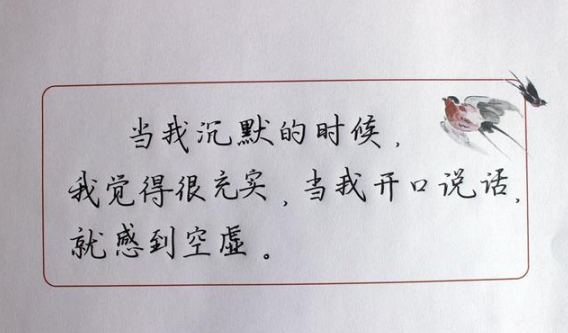 当我沉默的时候，
我觉得很充实，当我开口说话，
就感到空虚。